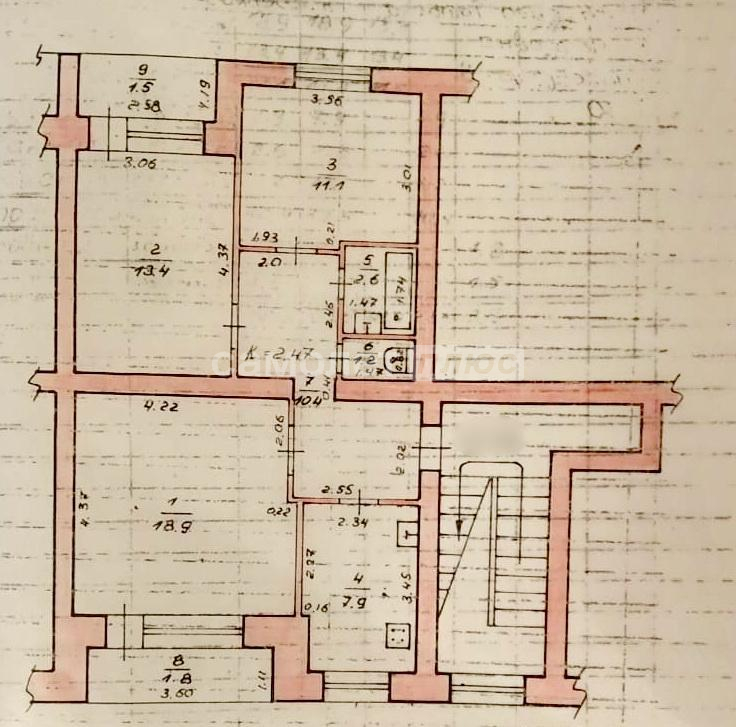 9
1.5
2.58
1.19
3.56
3.06
3
11.1
3.01
2
13.4
4.37
1.93
0.21
2.0
5
2.6
1.74
1.47
2.46
К=2.47
6
1.2
1.47
0.82
7
10.4
0.41
4.22
2.06
2.02
4.37
1
18.9
0.22
2.55
2.34
2.97
4
7.9
3.45
0.16
8
1.8
3.60
1.11